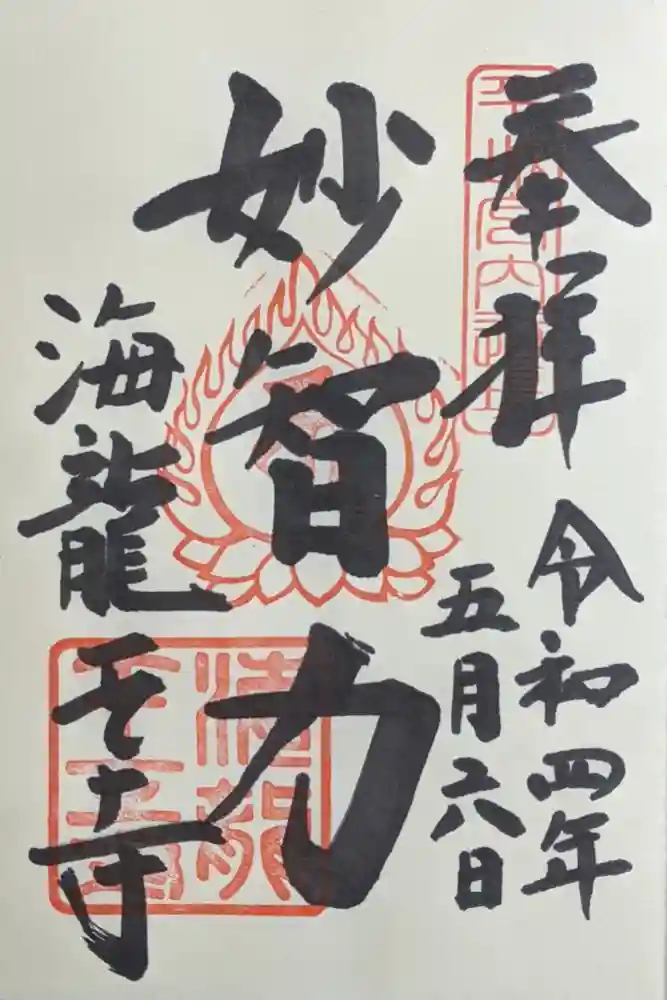 奉拝
令和四年
五月六日
妙智力
海龍王寺
海龍
王寺